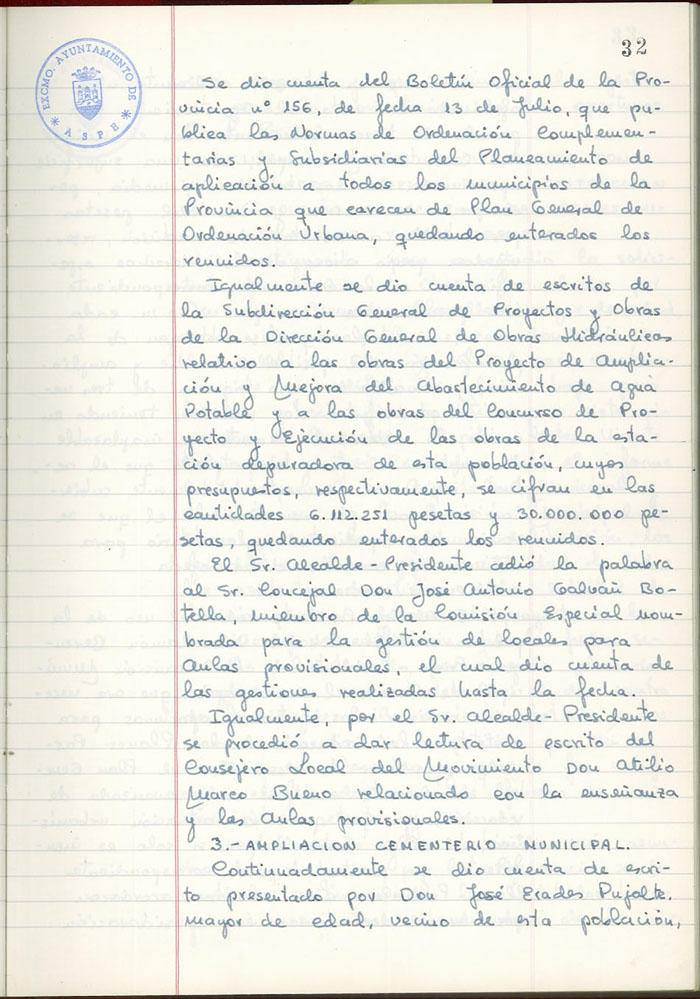 32
EXCMO. AYUNTAMIENTO DE
* ASPE *
Se dio cuenta del Boletín Oficial de la Pro-
vincia nº 156, de fecha 13 de Julio, que pu-
blica las Normas de Ordenación Complemen-
tarias y Subsidiarias del Planeamiento de
aplicación a todos los municipios de la
Provincia que carecen de Plan General de
Ordenación Urbana, quedando enterados los
reunidos.
Igualmente se dio cuenta de escritos de
la Subdirección General de Proyectos y Obras
de la Dirección General de Obras Hidráulicas
relativo a las obras del Proyecto de Amplia-
ción y Mejora del Abastecimiento de Agua
Potable y a las obras del Concurso de Pro-
yecto y Ejecución de las obras de la esta-
ción depuradora de esta población, cuyos
presupuestos, respectivamente, se cifran en las
cantidades 6.112.251 pesetas y 30.000.000 pe-
setas, quedando enterados los reunidos.
El Sr. Alcalde-Presidente cedió la palabra
al Sr. Concejal Don José Antonio Galvañ Bo-
tella, miembro de la Comisión Especial nom-
brada para la gestión de locales para
Aulas provisionales, el cual dio cuenta de
las gestiones realizadas hasta la fecha.
Igualmente, por el Sr. Alcalde-Presidente
se procedió a dar lectura de escrito del
Consejero Local del Movimiento Don Atilio
Marco Bueno relacionado con la enseñanza
y las Aulas provisionales.
3.- AMPLIACION CEMENTERIO MUNICIPAL.
Continuadamente se dio cuenta de escri-
to presentado por Don José Erades Pujalte,
mayor de edad, vecino de esta población,